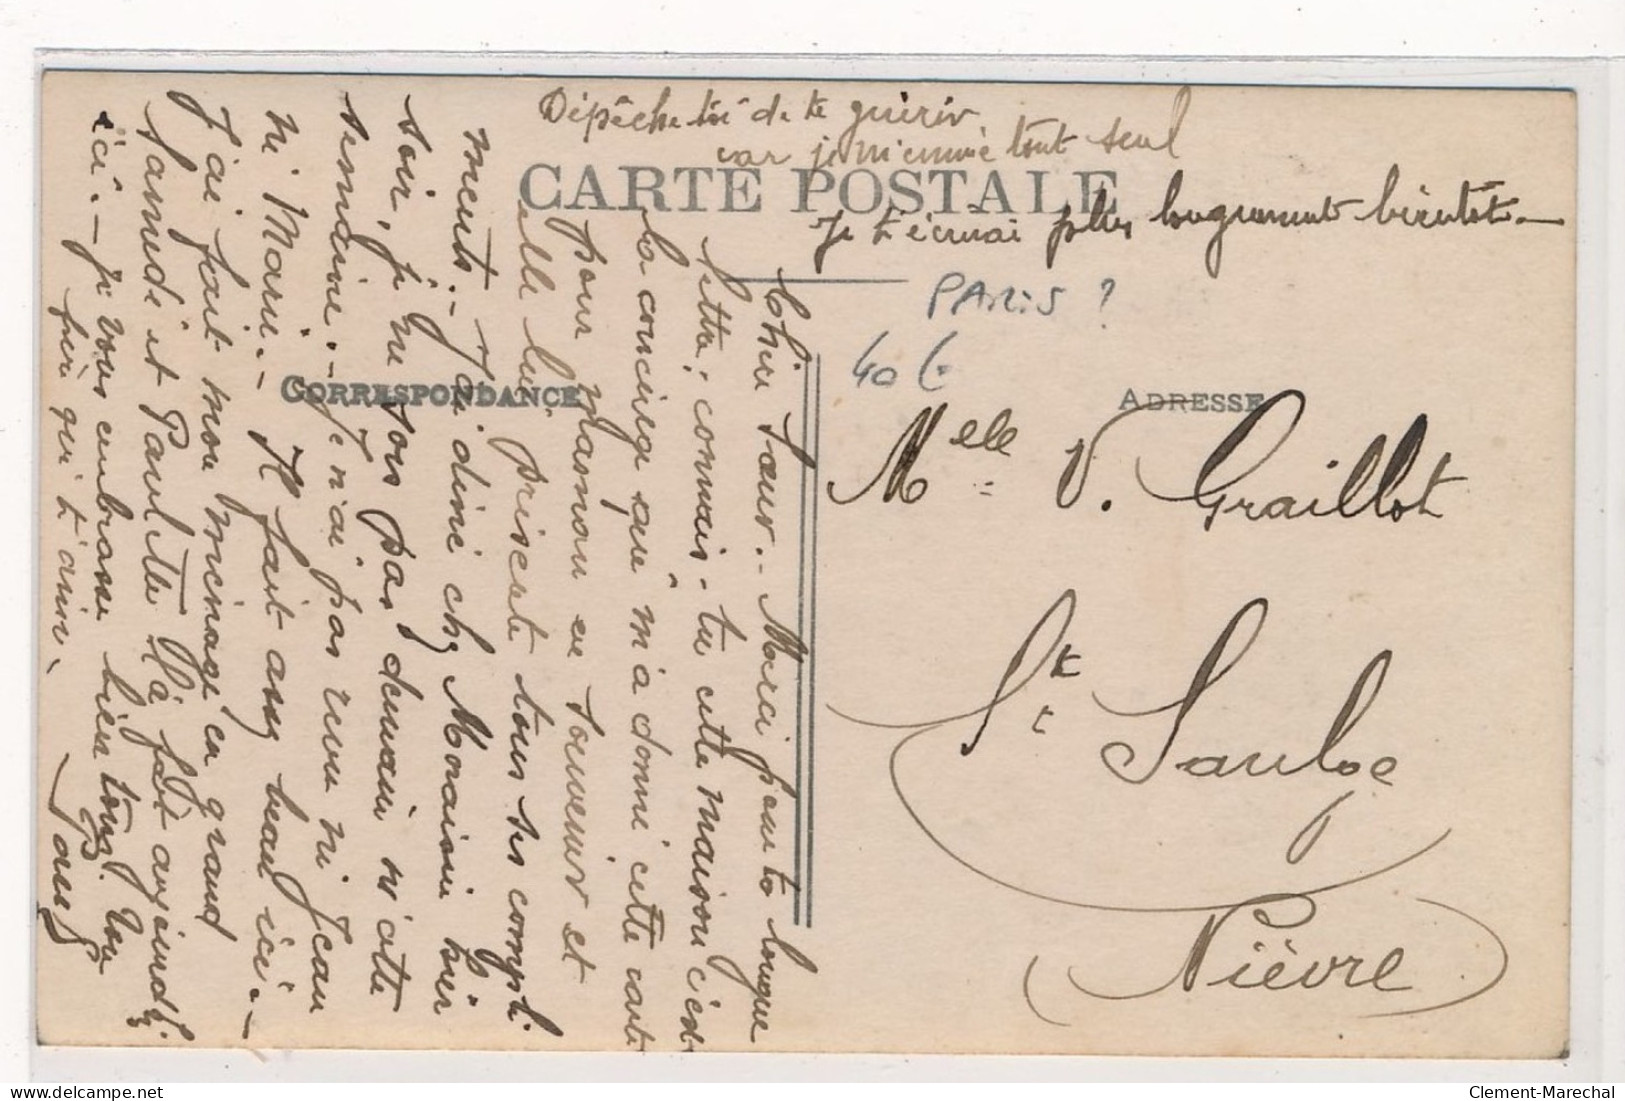 Dépêche toi de te guérir
car je m'ennuie tout seul
CARTE POSTALE
Je t'écrirai plus longuement bientot. —
PARIS ?
40 €
CORRESPONDANCE
ADRESSE
Melle V. Graillot
St Saulge
Nièvre
Chère Sœur. Merci pour ta longue
lettre, connais-tu cette maison c'est
la concierge que m'a donné cette carte
pour maman en souvenir et
elle lui présente tous ses compli-
ments. J'ai diné chez Moraisin hier
soir, je ne sors pas demain ni cette
semaine. — Je n'ai pas revu ni Jean
ni Marie. — Il fait assez beau ici. —
J'ai fait mon ménage en grand
samedi et Paulette l'a fait aujourd'
ici. — Je vous embrasse bien tous. Ton
qui t'aime.